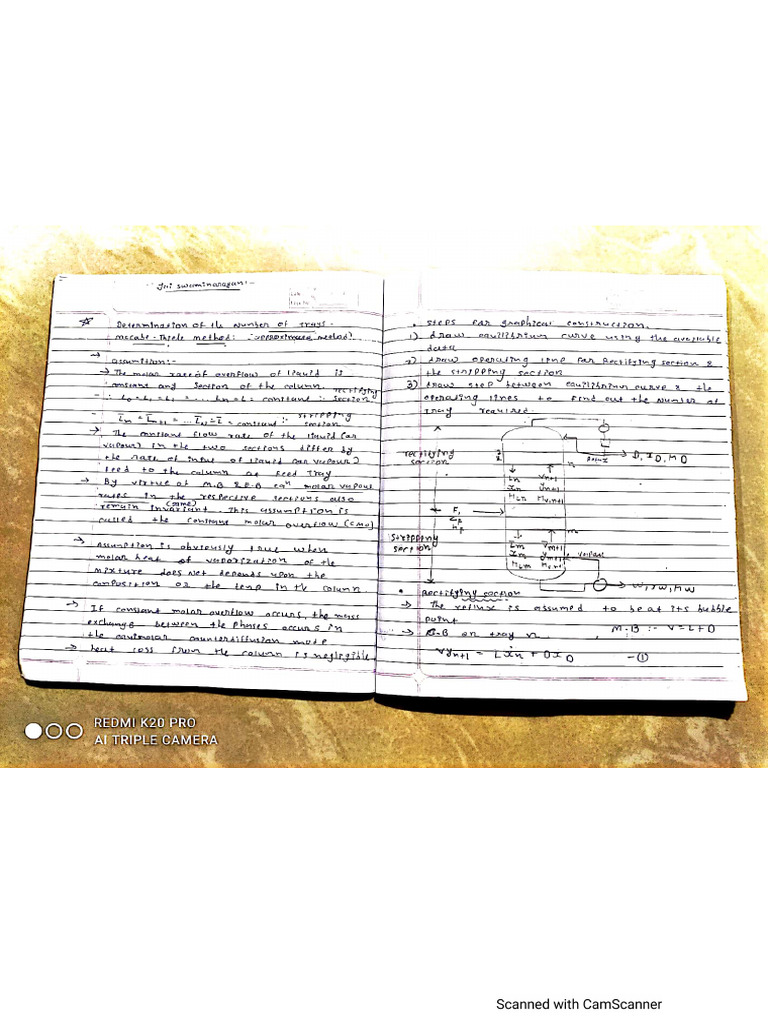 Jai Swaminarayan:-
Determination of the Number of trays -
McCabe-Thiele method: (approximate method)
→ assumtion:-
→ The molar rate of overflow of liquid is
constant any section of the column.
- L0 = L1 = L2 = .... Ln = L = constant :- rectifying section.
- L̄m = L̄m+1 = ... = L̄ = constant :- stripping section
→ The constant flow rate of the liquid (or
vapour) in the two sections differ by
the rate of input of liquid (or vapour)
feed to the column at feed tray
→ By virtue of M.B & E.B eqn molar vapour
rates in the respective sections also
remain invariant (same). This assumption is
called the constant molar overflow (CMO)
→ Assumption is obviously true when
molar heat of vaporization of the
mixture does not depends upon the
composition or the temp in the column
→ If constant molar overflow occurs, the mass
exchange between the phases occurs in
the equimolar counterdiffusion mode
→ heat loss from the column is negligible
• steps for graphical construction.
1) draw equilibrium curve using the available
data
2) draw operating line for Rectifying section &
the stripping section
3) draw step between equilibrium curve & the
operating lines to find out the number of
tray required
rectifying
section
n
Ln
xn
HLn
Vn+1
yn+1
HV,n+1
D, xD, HD
F,
zF
HF
stripping
section
m
L̄m
xm
HLm
V̄m+1
ym+1
HV,m+1
vapour
W, xW, HW
• Rectifying section
→ The reflux is assumed to be at its bubble
point
→ C.B on tray n , M.B :- V = L + D
Vyn+1 = Lxn + DxD -①
REDMI K20 PRO
AI TRIPLE CAMERA
Scanned with CamScanner